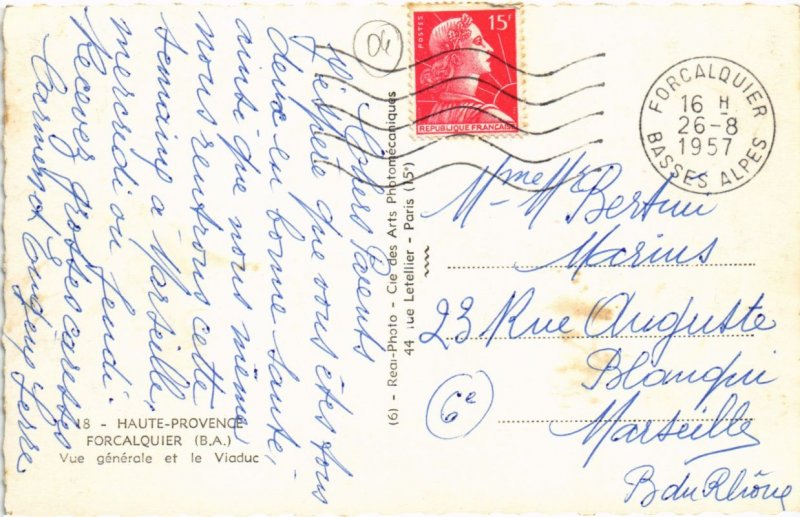 Chers Parents
J'espère que vous êtes tous
deux en bonne santé,
ainsi que nous même
nous rentrons cette
semaine a Marseille,
mercredi ou Jeudi.
Recever grosses caresses
Carmen et
Pierre
18 - HAUTE-PROVENCE
FORCALQUIER (B.A.)
Vue générale et le Viaduc
(6) - Real-Photo - Cie des Arts Photomécaniques
44 rue Letellier - Paris (15e)
04
POSTES
15F
REPUBLIQUE FRANÇAISE
FORCALQUIER
16 H
26-8
1957
BASSES ALPES
Mme Mr Bertini
Marius
23 Rue Auguste
Blanqui
6e
Marseille
B du Rhône